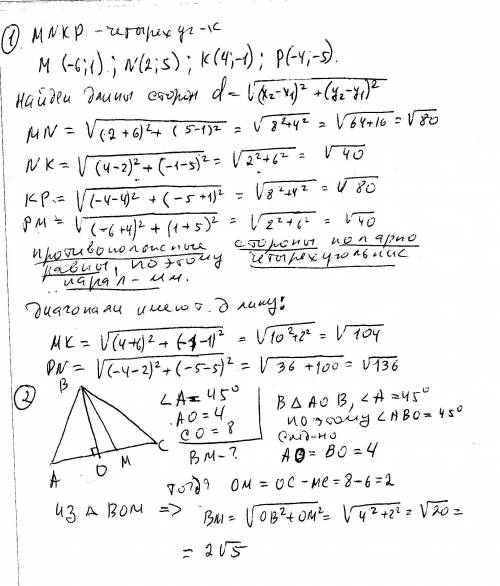 ① MNKP - четырехуг-к
M (-6;1); N(2;5); K(4;-1); P(-4;-5).
Найдем длины сторон d=√(x₂-x₁)² + (y₂-y₁)²
MN = √(2+6)² + (5-1)² = √8²+4² = √64+16 = √80
NK = √(4-2)² + (-1-5)² = √2²+6² = √40
KP = √(-4-4)² + (-5+1)² = √8²+4² = √80
PM = √(-6+4)² + (1+5)² = √2²+6² = √40
противоположные стороны попарно
равны, поэтому четырехугольник
парал-мм.
Диагонали имеют длину:
MK = √(4+6)² + (-1-1)² = √10²+2² = √104
PN = √(-4-2)² + (-5-5)² = √36+100 = √136
②
B
A
O
M
C
∠A = 45°
AO = 4
CO = 8
BM - ?
В △ AOB, ∠A = 45°
поэтому ∠ABO = 45°
След-но
AO = BO = 4
тогда OM = OC - MC = 8-6=2
Из △ BOM => BM = √OB²+OM² = √4²+2² = √20 =
= 2√5